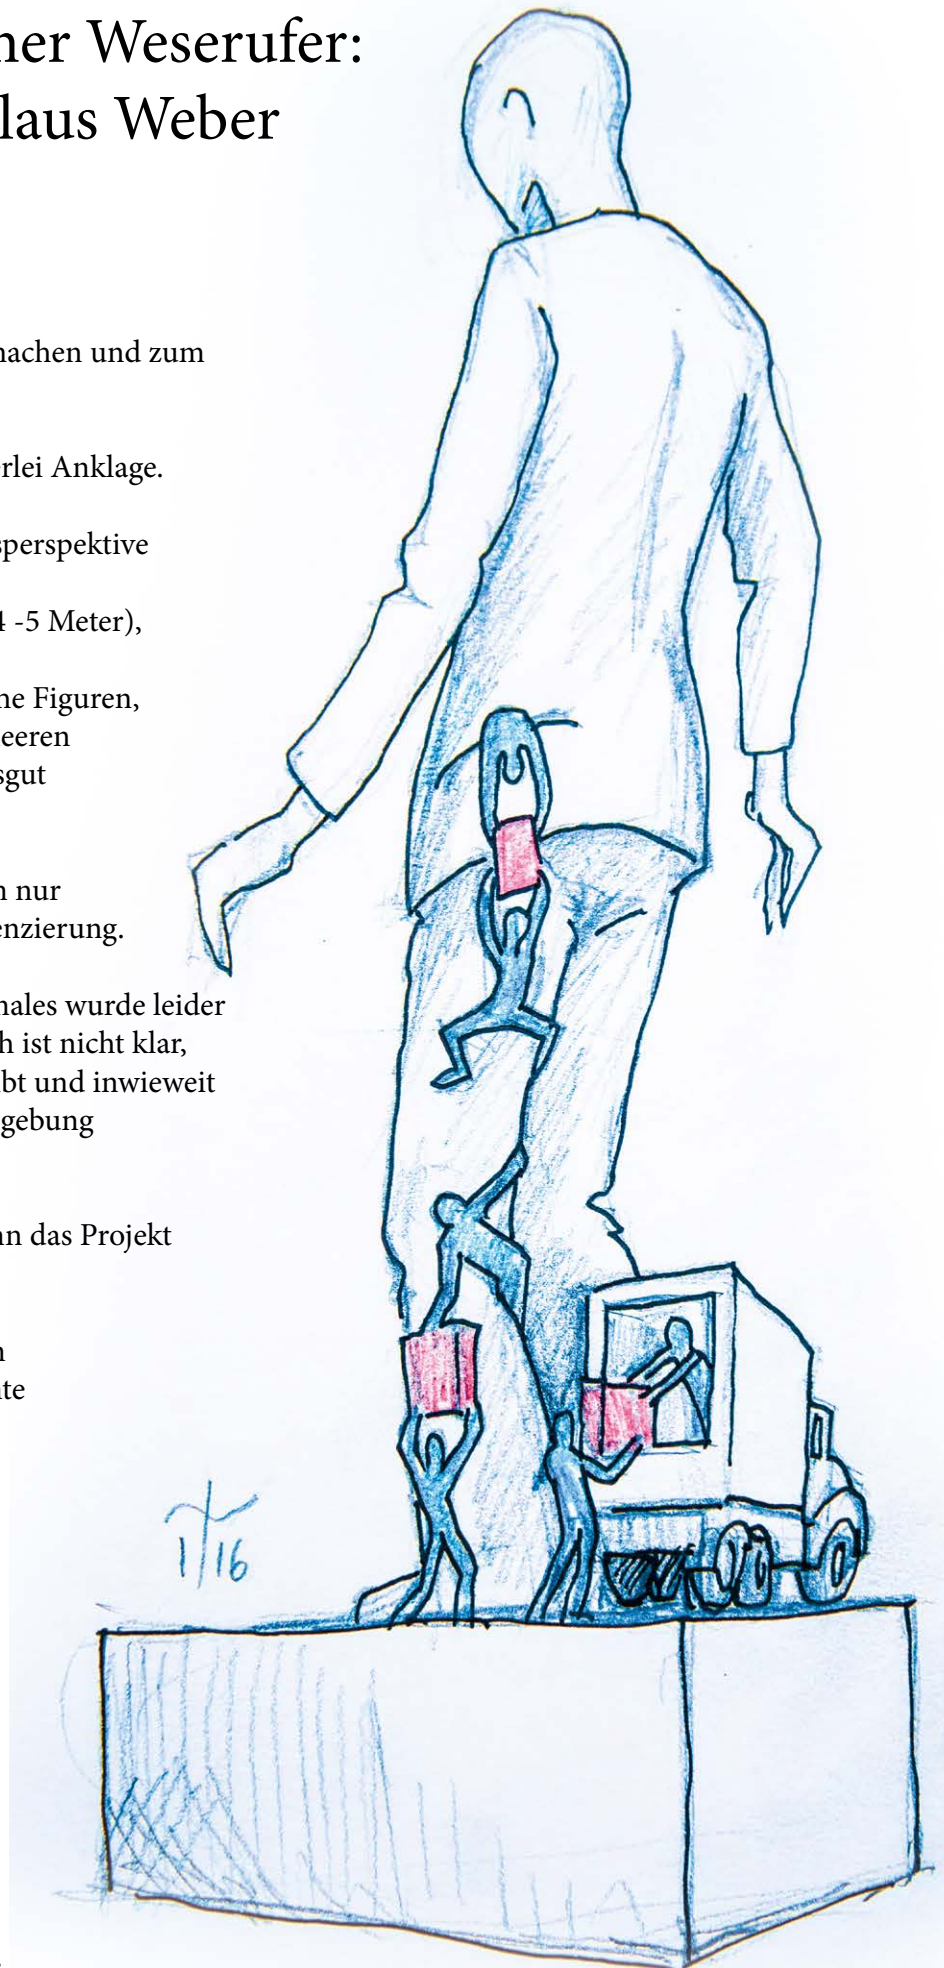 ner Weserufer:
laus Weber
nachen und zum
erlei Anklage.
sperspektive
4 -5 Meter),
ne Figuren,
eeren
sgut
n nur
enzierung.
nales wurde leider
h ist nicht klar,
bt und inwieweit
gebung
nn das Projekt
n
nte
1/16